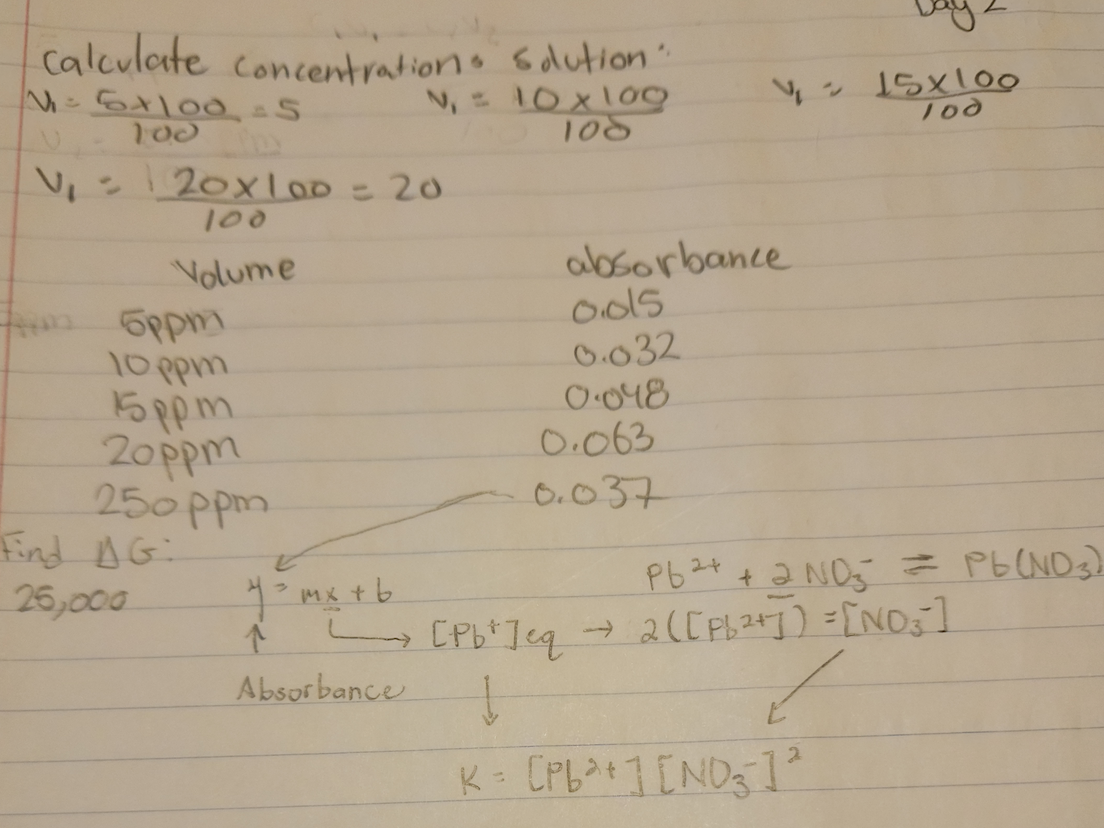 Day 2
Calculate concentrations solution:
V₁ = 5x100/100 = 5 V₁ = 10x100/100 V₁ = 15x100/100
V₁ = 20x100/100 = 20
Volume absorbance
5ppm 0.015
10ppm 0.032
15ppm 0.048
20ppm 0.063
250ppm 0.037
Find ΔG:
25,000 y = mx + b Pb²⁺ + 2NO₃⁻ ⇌ Pb(NO₃)
↑ → [Pb⁺]eq → 2([Pb²⁺]) = [NO₃⁻]
Absorbance ↓
K = [Pb²⁺][NO₃⁻]²